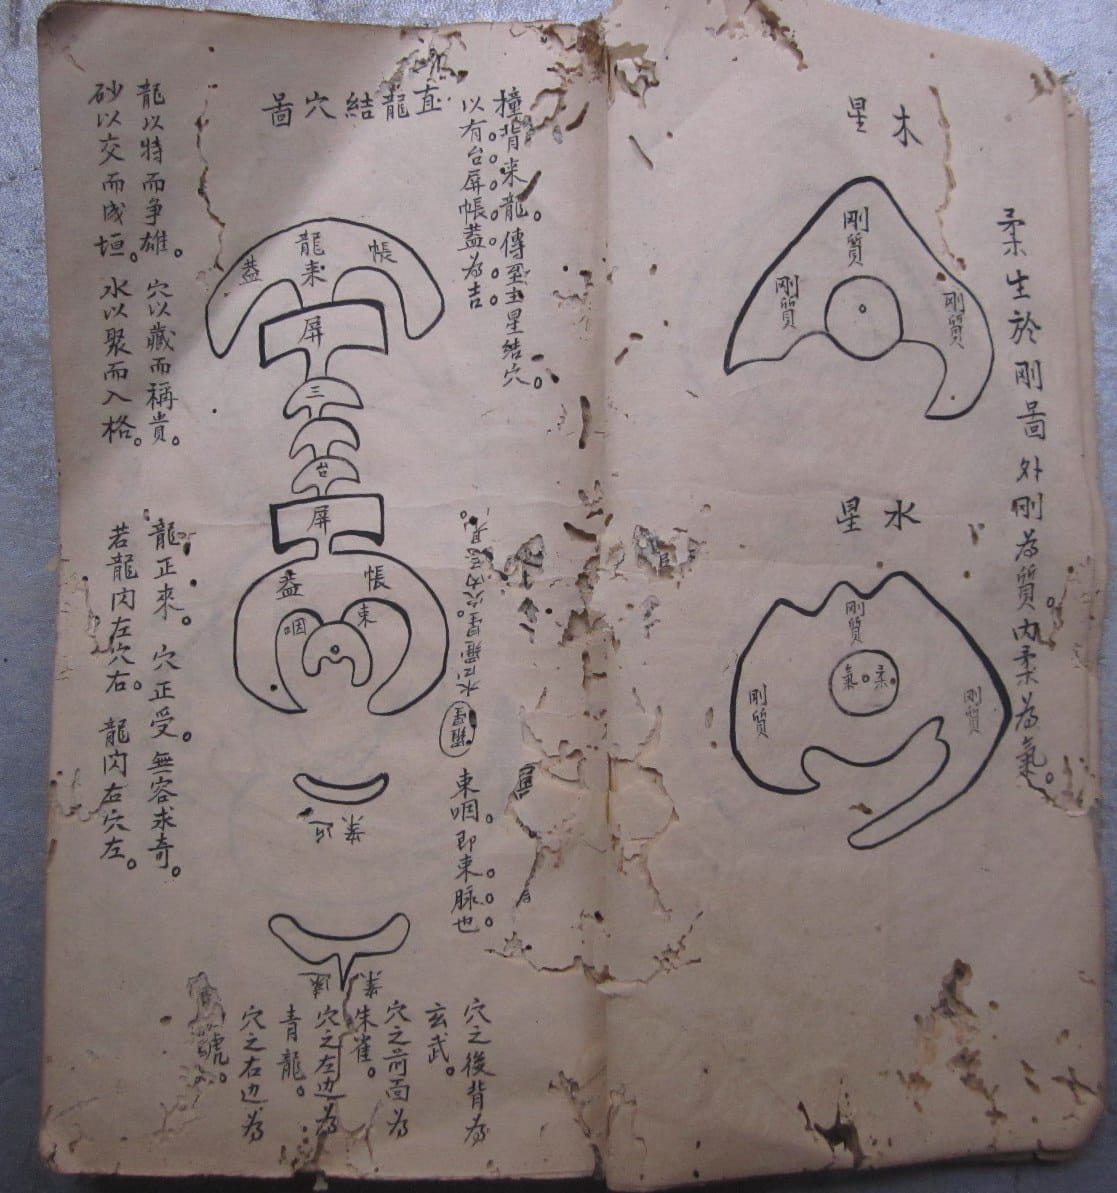 柔生於剛啚 外剛為質。內柔為氣。
木星
剛質
剛質
剛質
水星
剛質
剛質
剛質
柔氣
撞背来龍。傳至主星結穴。
以有台屏帳蓋為吉
直龍結穴啚
帳
龍来
蓋
屏
三
台
屏
帳
蓋
束
咽
羅星
水口羅星穴內忌見。
束咽。即束脉也
近案
遠案
穴之後背為
玄武。
穴之前面為
朱雀。
穴之左边為
青龍。
穴之右边為
虎。
龍以特而争雄。 穴以藏而稱貴。
砂以交而成垣。 水以聚而入格。
龍正來。 穴正受。 無容求奇。
若龍內左穴右。 龍內右穴左。